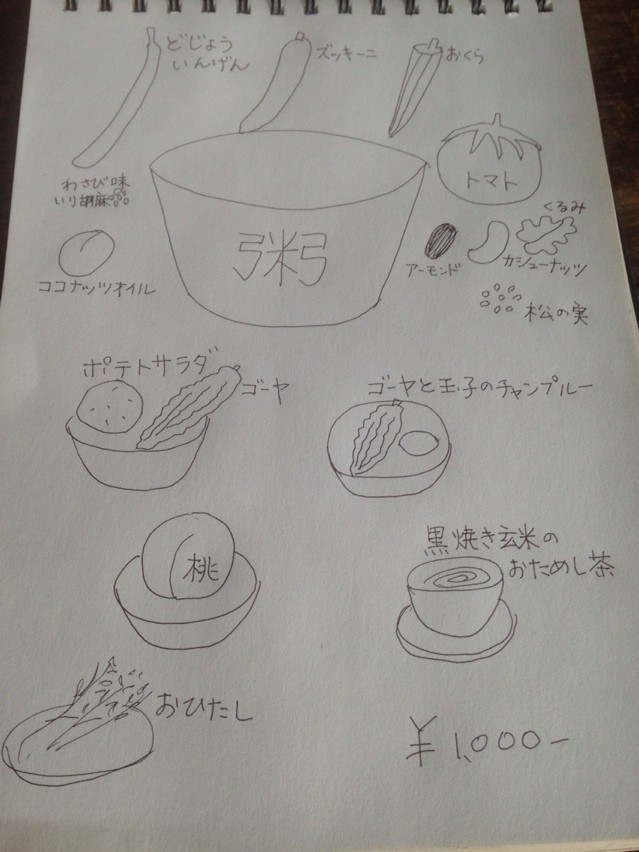 どじょう
いんげん
ズッキーニ
おくら
トマト
わさび味
いり胡麻
粥
くるみ
アーモンド
カシューナッツ
ココナッツオイル
松の実
ポテトサラダ
ゴーヤ
ゴーヤと玉子のチャンプルー
桃
黒焼き玄米の
おためし茶
おひたし
¥1,000-